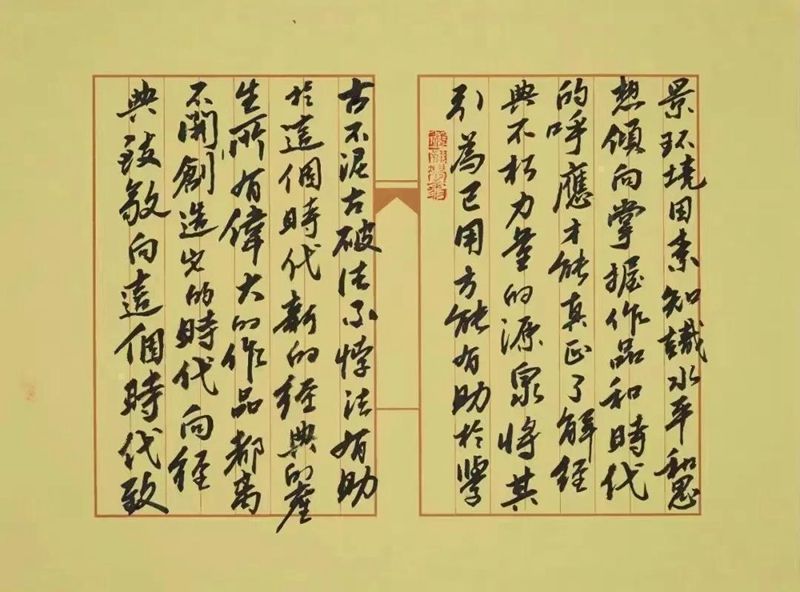 景环境因素知識水平和思
想傾向掌握作品和時代
的呼應才能真正了解经
典不朽力量的源泉将其
引為已用方能有助於學
古不泥古破法不悖法有助
於這個時代新的经典的產
生所有偉大的作品都离
不開創造它的時代向经
典致敬向這個時代致